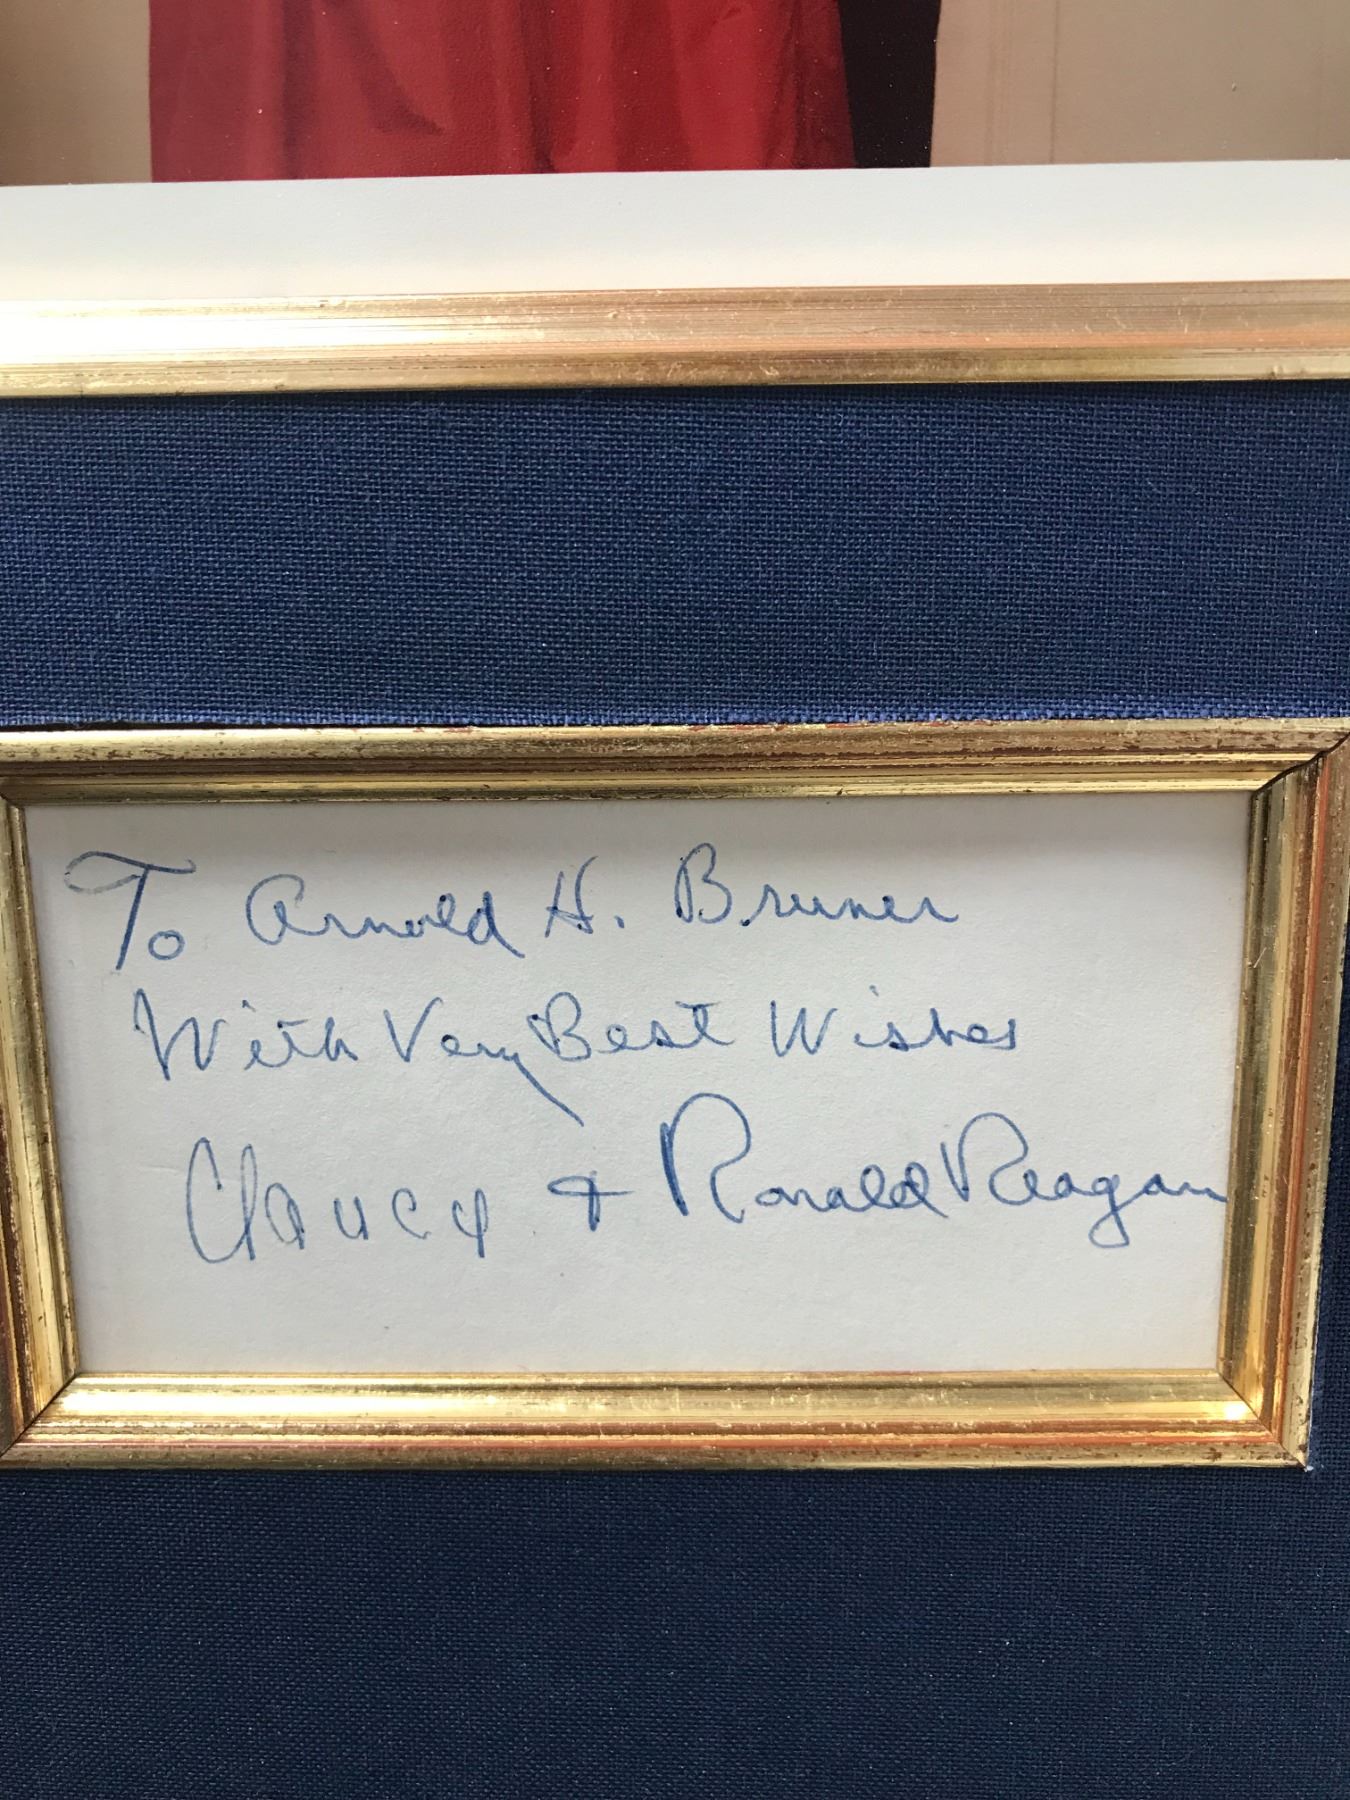 To Arnold H. Bruner
With Very Best Wishes
Nancy + Ronald Reagan